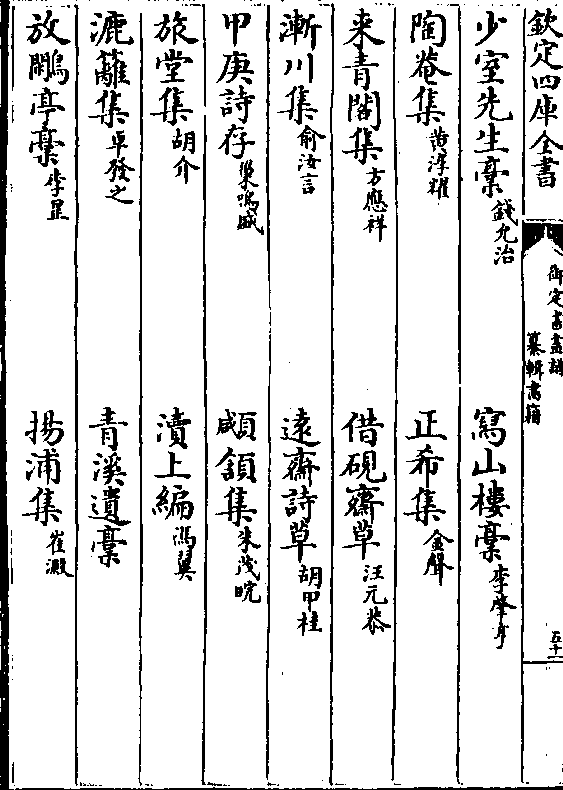 欽定四庫全書
御定書畫譜
纂輯書籍
五十一
少室先生稾 錢允治 寫山樓稾 李肇亨
陶菴集 黄淳耀 正希集 金聲
来青閣集 方應祥 借硯齋草 汪元恭
漸川集 俞汝言 遠齋詩草 胡甲桂
甲庚詩存 巢鳴盛 顑頷集 朱茂晥
旅堂集 胡介 瀆上編 馮翼
漉籬集 卓發之 青溪遺稾
放鷳亭稾 李 揚浦集 崔